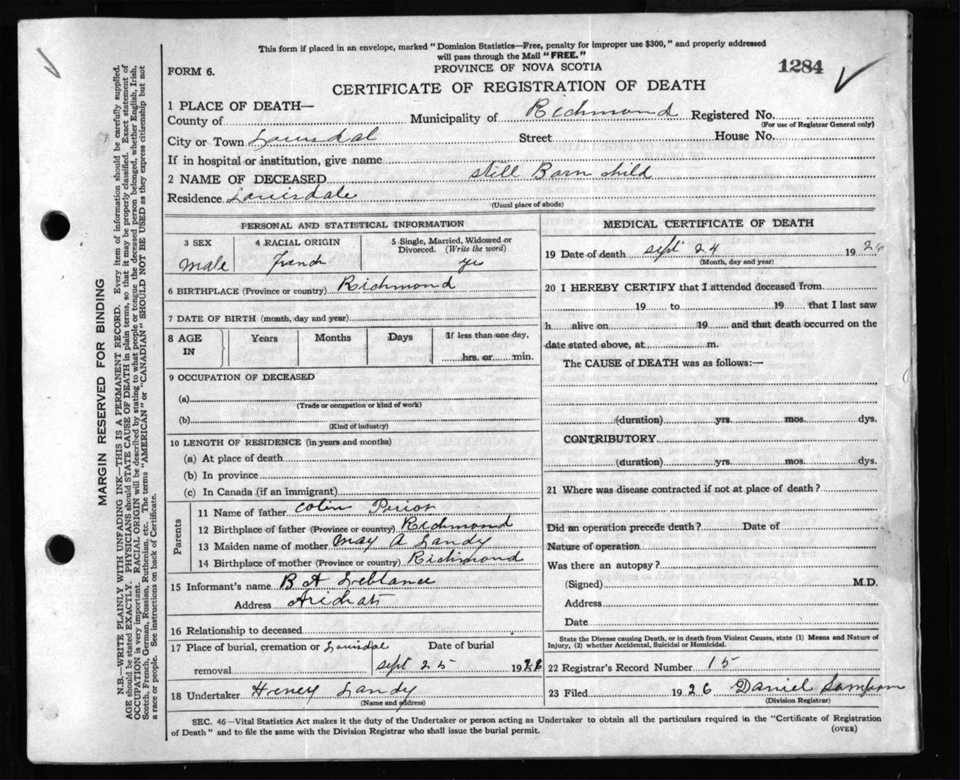 This form if placed in an envelope, marked "Dominion Statistics—Free, penalty for improper use $300," and properly addressed
will pass through the Mail "FREE."
FORM 6.
PROVINCE OF NOVA SCOTIA
1284
CERTIFICATE OF REGISTRATION OF DEATH
1 PLACE OF DEATH—
County of
Municipality of Richmond
Registered No.
(For use of Registrar General only)
City or Town Louisdal
Street
House No.
If in hospital or institution, give name
2 NAME OF DECEASED still Born child
Residence Louisdale
(Usual place of abode)
PERSONAL AND STATISTICAL INFORMATION
3 SEX
male
4 RACIAL ORIGIN
french
5 Single, Married, Widowed or
Divorced. (Write the word)
yes
6 BIRTHPLACE (Province or country) Richmond
7 DATE OF BIRTH (month, day and year)
8 AGE
IN
Years
Months
Days
If less than one day,
hrs. or min.
9 OCCUPATION OF DECEASED
(a)
(Trade or occupation or kind of work)
(b)
(Kind of industry)
10 LENGTH OF RESIDENCE (in years and months)
(a) At place of death
(b) In province
(c) In Canada (if an immigrant)
Parents
11 Name of father Colin
12 Birthplace of father (Province or country) Richmond
13 Maiden name of mother May A Landy
14 Birthplace of mother (Province or country) Richmond
15 Informant's name B A Leblance
Address Arichat
16 Relationship to deceased
17 Place of burial, cremation or Louisdal Date of burial
removal sept 25 1926
18 Undertaker Landy
(Name and address)
MEDICAL CERTIFICATE OF DEATH
19 Date of death sept 24 1926
(Month, day and year)
20 I HEREBY CERTIFY that I attended deceased from
19 to 19 that I last saw
h alive on 19 and that death occurred on the
date stated above, at m.
The CAUSE of DEATH was as follows:—
(duration) yrs. mos. dys.
CONTRIBUTORY
(duration) yrs. mos. dys.
21 Where was disease contracted if not at place of death?
Did an operation precede death? Date of
Nature of operation
Was there an autopsy?
(Signed) M.D.
Address
Date
State the Disease causing Death, or in death from Violent Causes, state (1) Means and Nature of
Injury, (2) whether Accidental, Suicidal or Homicidal.
22 Registrar's Record Number 15
23 Filed 1926 Daniel Sampson
(Division Registrar)
SEC. 46—Vital Statistics Act makes it the duty of the Undertaker or person acting as Undertaker to obtain all the particulars required in the "Certificate of Registration
of Death" and to file the same with the Division Registrar who shall issue the burial permit.
(OVER)
MARGIN RESERVED FOR BINDING
N.B.—WRITE PLAINLY WITH UNFADING INK—THIS IS A PERMANENT RECORD. Every item of information should be carefully supplied.
AGE should be stated EXACTLY. PHYSICIANS should STATE CAUSE OF DEATH in plain terms, so that it may be properly classified. Exact statement of
OCCUPATION is very important. RACIAL ORIGIN will be described by stating to what people or tongue the deceased person belonged, whether English, Irish,
Scotch, French, German, Russian, Ruthenian, etc. The terms "AMERICAN" or "CANADIAN" SHOULD NOT BE USED as they express citizenship but not
a race or people. See instructions on back of Certificate.